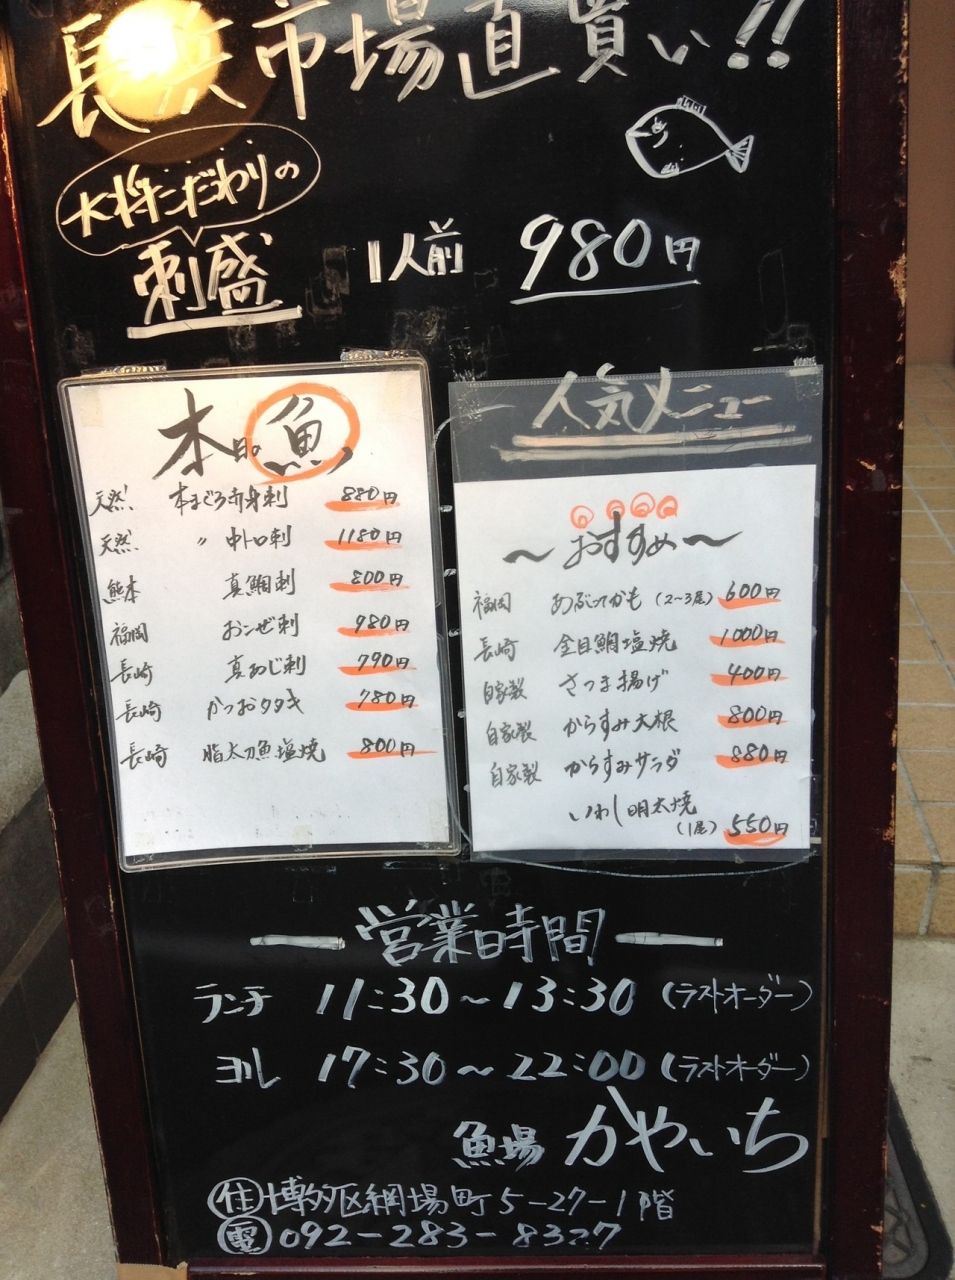 長浜市場直買い!!
大将こだわりの
刺盛 1人前 980円
本日の魚
天然 本まぐろ赤身刺 880円
天然 〃 中トロ刺 1180円
熊本 真鯛刺 800円
福岡 おこぜ刺 980円
長崎 真あじ刺 790円
長崎 かつおタタキ 780円
長崎 脂太刀魚塩焼 800円
人気メニュー
〜おすすめ〜
福岡 あぶってかも (2〜3尾) 600円
長崎 金目鯛塩焼 1000円
自家製 さつま揚げ 400円
自家製 からすみ大根 800円
自家製 からすみサラダ 880円
いわし明太焼
(1尾) 550円
ー営業時間ー
ランチ 11:30〜13:30 (ラストオーダー)
ヨル 17:30〜22:00 (ラストオーダー)
魚場 かやいち
住 博多区網場町5-27-1階
電 092-283-8327